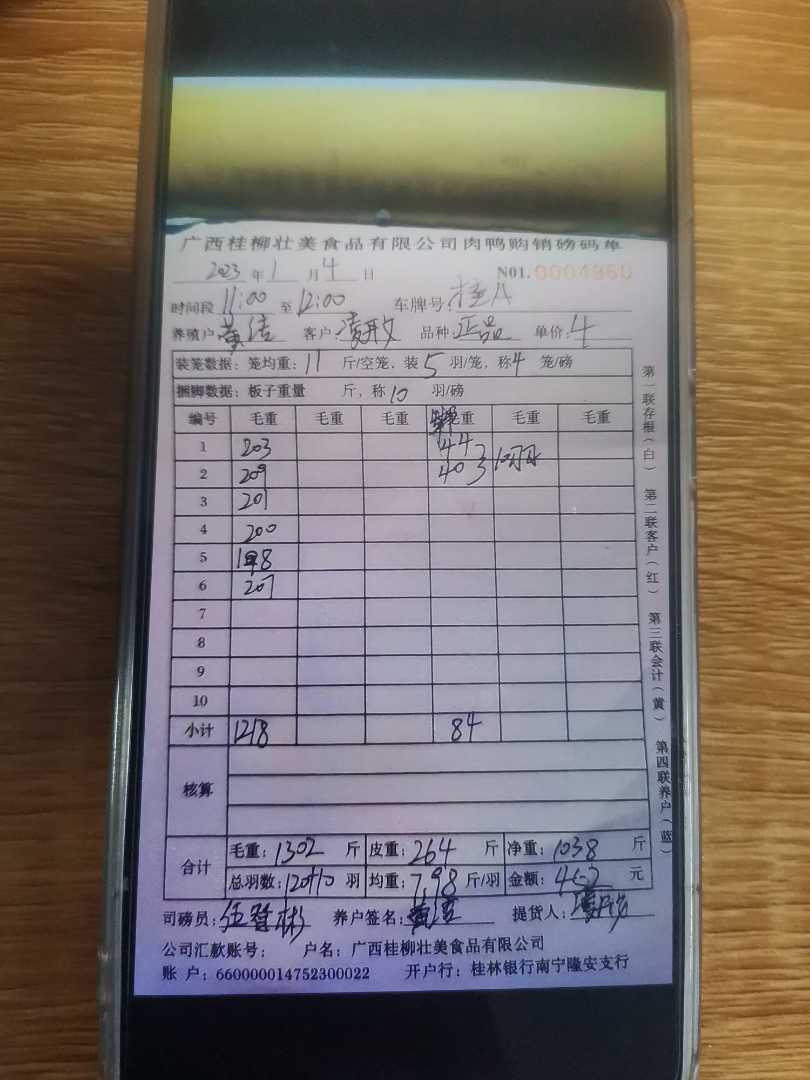 广西桂柳壮美食品有限公司肉鸭购销磅码单
2023 年 1 月 4 日 N01. 0004960
时间段 11:00 至 12:00 车牌号: 桂A
养殖户 黄洁 客户: 品种: 正品 单价: 4
装笼数据: 笼均重: 11 斤/空笼, 装 5 羽/笼, 称 4 笼/磅
捆脚数据: 板子重量 斤, 称 10 羽/磅
编号 毛重 毛重 毛重 毛重 毛重 毛重
1 203 44
2 209 40 10羽
3 201
4 200
5 198
6 207
7
8
9
10
小计 1218 84
核算
合计 毛重: 1302 斤 皮重: 264 斤 净重: 1038 斤
总羽数: 120+10 羽 均重: 7.98 斤/羽 金额: 元
司磅员: 养户签名: 黄洁 提货人:
公司汇款账号: 户名: 广西桂柳壮美食品有限公司
账 户: 660000014752300022 开户行: 桂林银行南宁隆安支行
第一联存根(白) 第二联客户(红) 第三联会计(黄) 第四联养户(蓝)